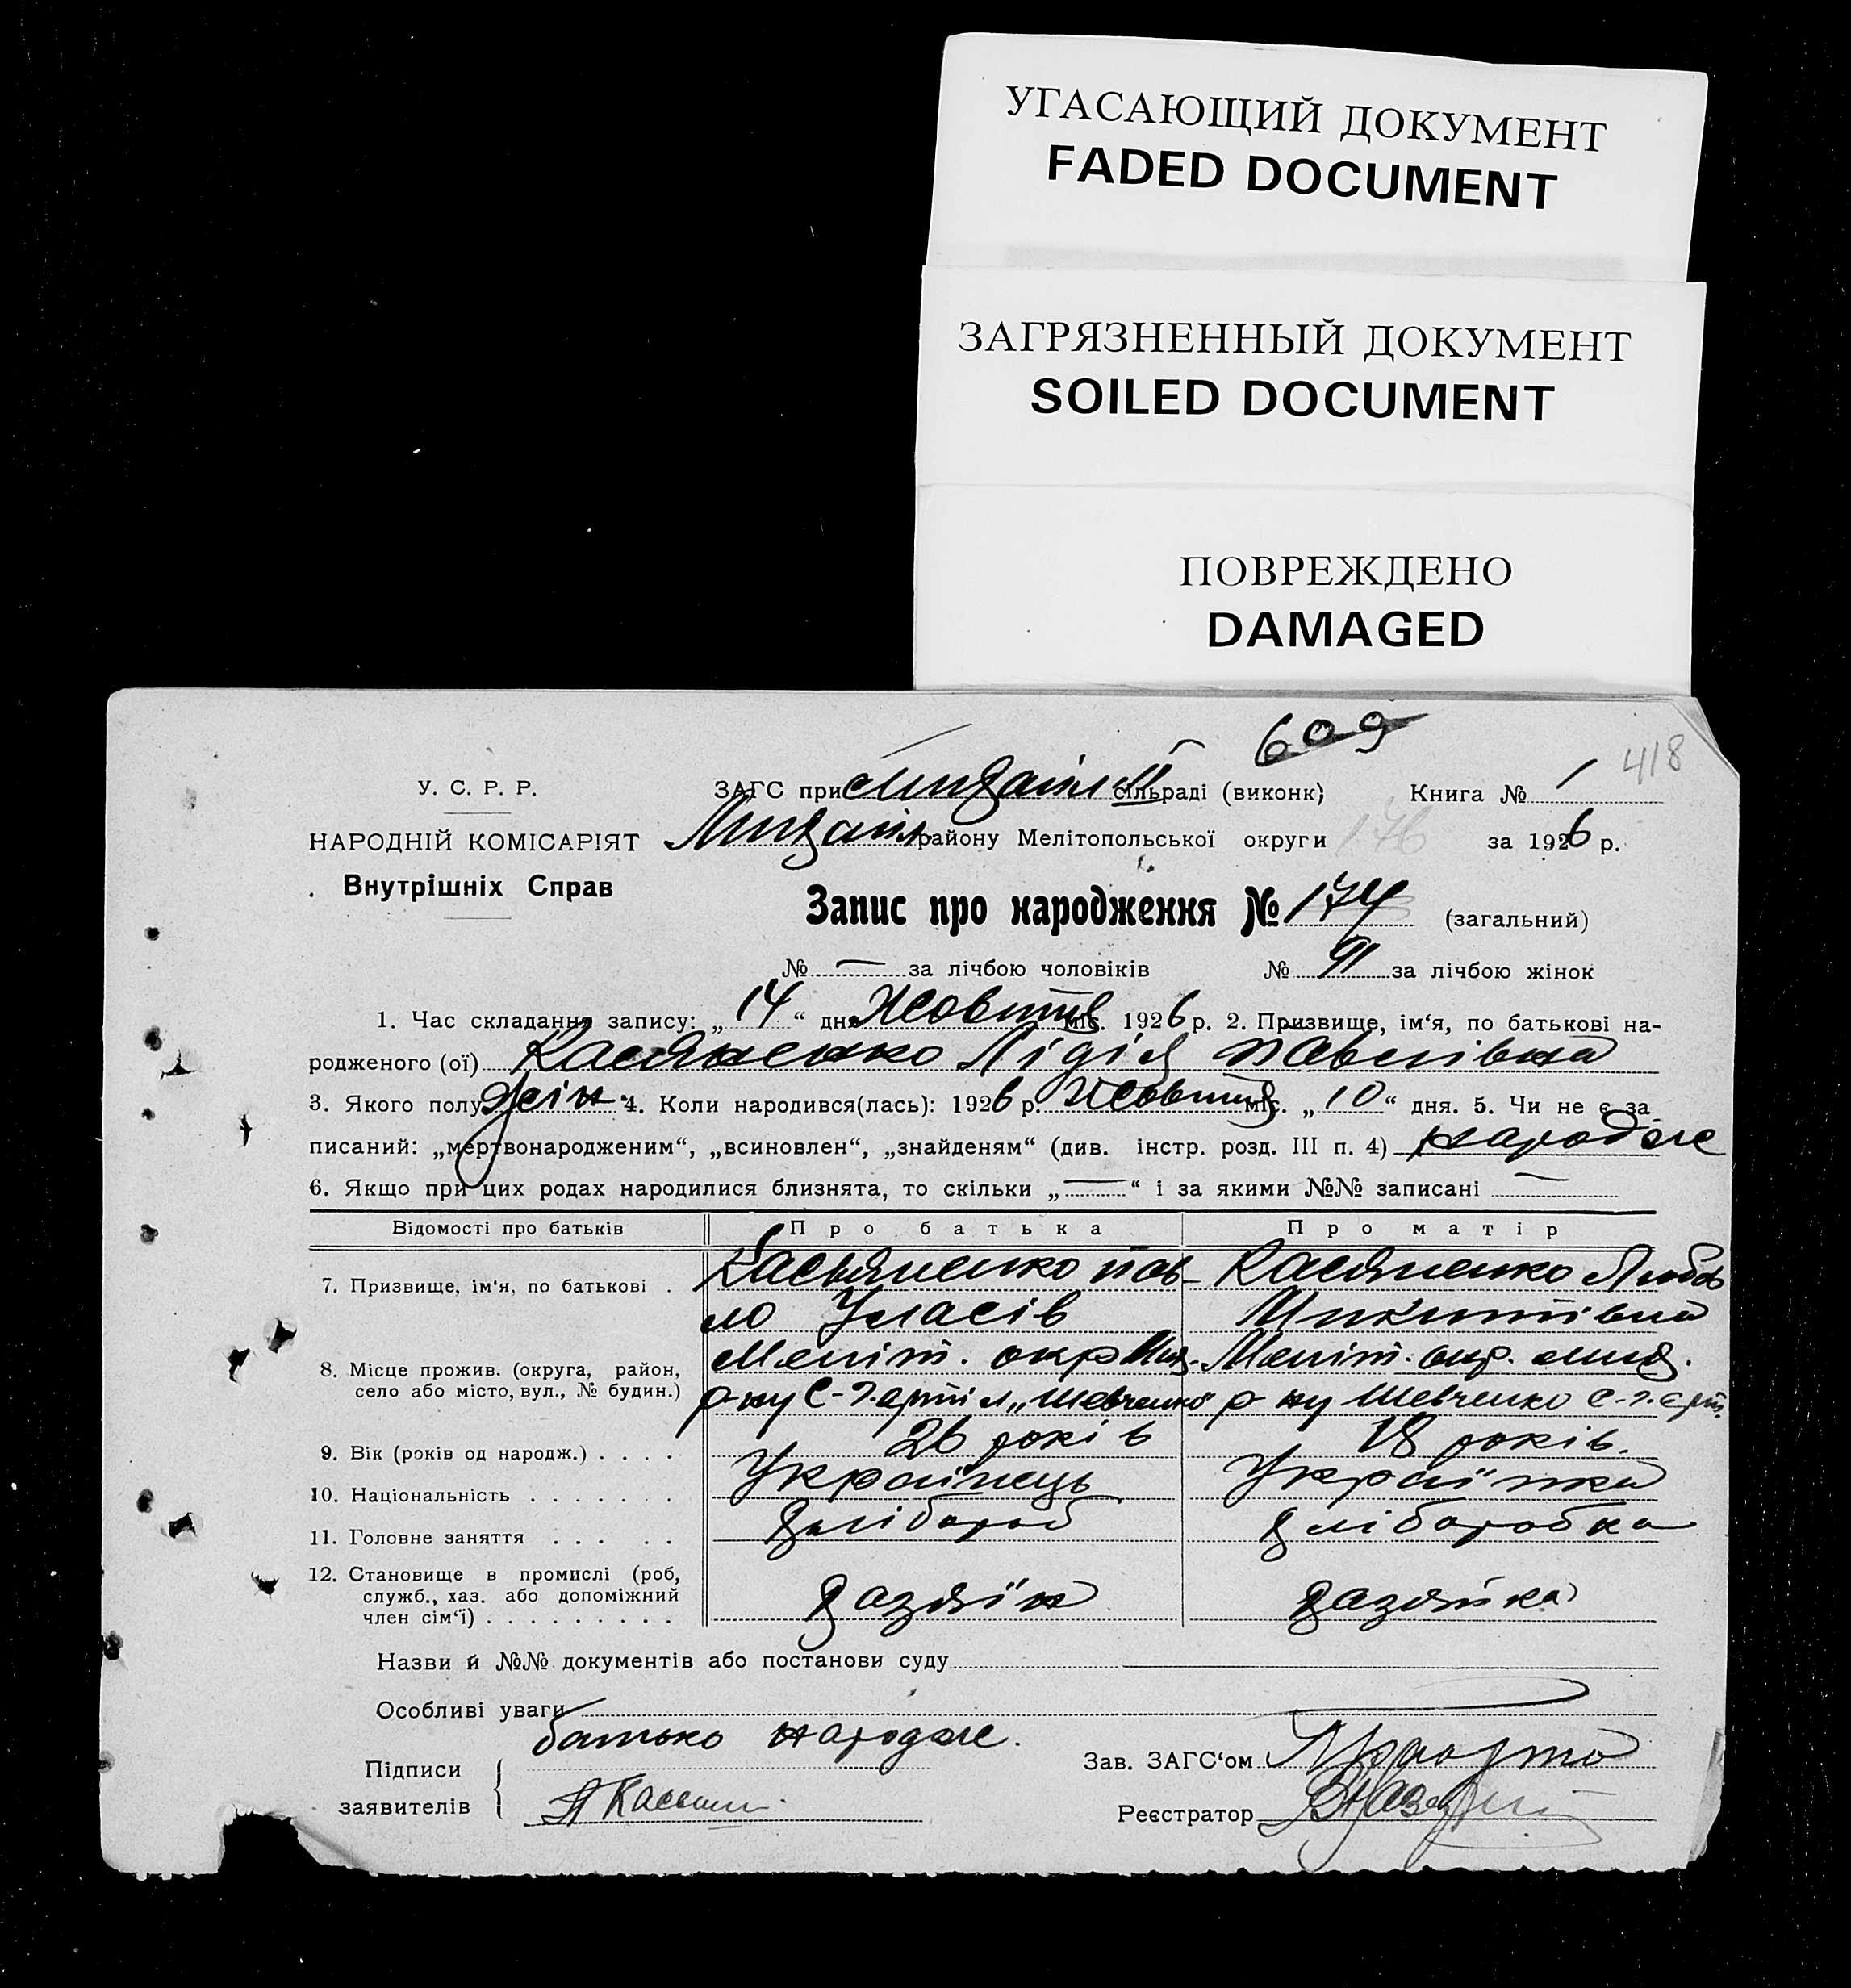 УГАСАЮЩИЙ ДОКУМЕНТ
FADED DOCUMENT
ЗАГРЯЗНЕННЫЙ ДОКУМЕНТ
SOILED DOCUMENT
ПОВРЕЖДЕНО
DAMAGED
609
418
У. С. Р. Р. ЗАГС при Михайл сільраді (виконк) Книга № 1
НАРОДНІЙ КОМІСАРІЯТ Михайл району Мелітопольської округи 176 за 1926 р.
Внутрішніх Справ
Запис про народження № 174 (загальний)
№ — за лічбою чоловіків № 91 за лічбою жінок
1. Час складання запису: „14“ дня Жовтня міс. 1926 р. 2. Призвище, ім‘я, по батькові на-
родженого (ої) Касяненко Лідія Павлівна
3. Якого полу жін. 4. Коли народився(лась): 1926 р. Жовтня міс. „10“ дня. 5. Чи не є за
писаний: „мертвонародженим“, „всиновлен“, „знайденям“ (див. інстр. розд. III п. 4) народже
6. Якщо при цих родах народилися близнята, то скільки „—“ і за якими №№ записані —
Відомості про батьків Про батька Про матір
7. Призвище, ім‘я, по батькові . Касьяненко Пав- Касяненко Любов
ло Уласів Микитівна
8. Місце прожив. (округа, район, Меліт. окр Мих. Меліт. окр. мих.
село або місто, вул., № будин.) р-ну С-г. артіл „Шевченко“ р-ну Шевченко С-г. арт.
9. Вік (років од народж.) . . . . 26 років 18 років.
10. Національність . . . . . . . Українець Українка
11. Головне заняття . . . . . хлібороб хліборобка
12. Становище в промислі (роб,
служб., хаз. або допоміжний хазяїн хазяйка
член сім‘ї) . . . . . . . . .
Назви й №№ документів або постанови суду
Особливі уваги
батько народже.
Підписи Зав. ЗАГС‘ом
заявителів Реєстратор